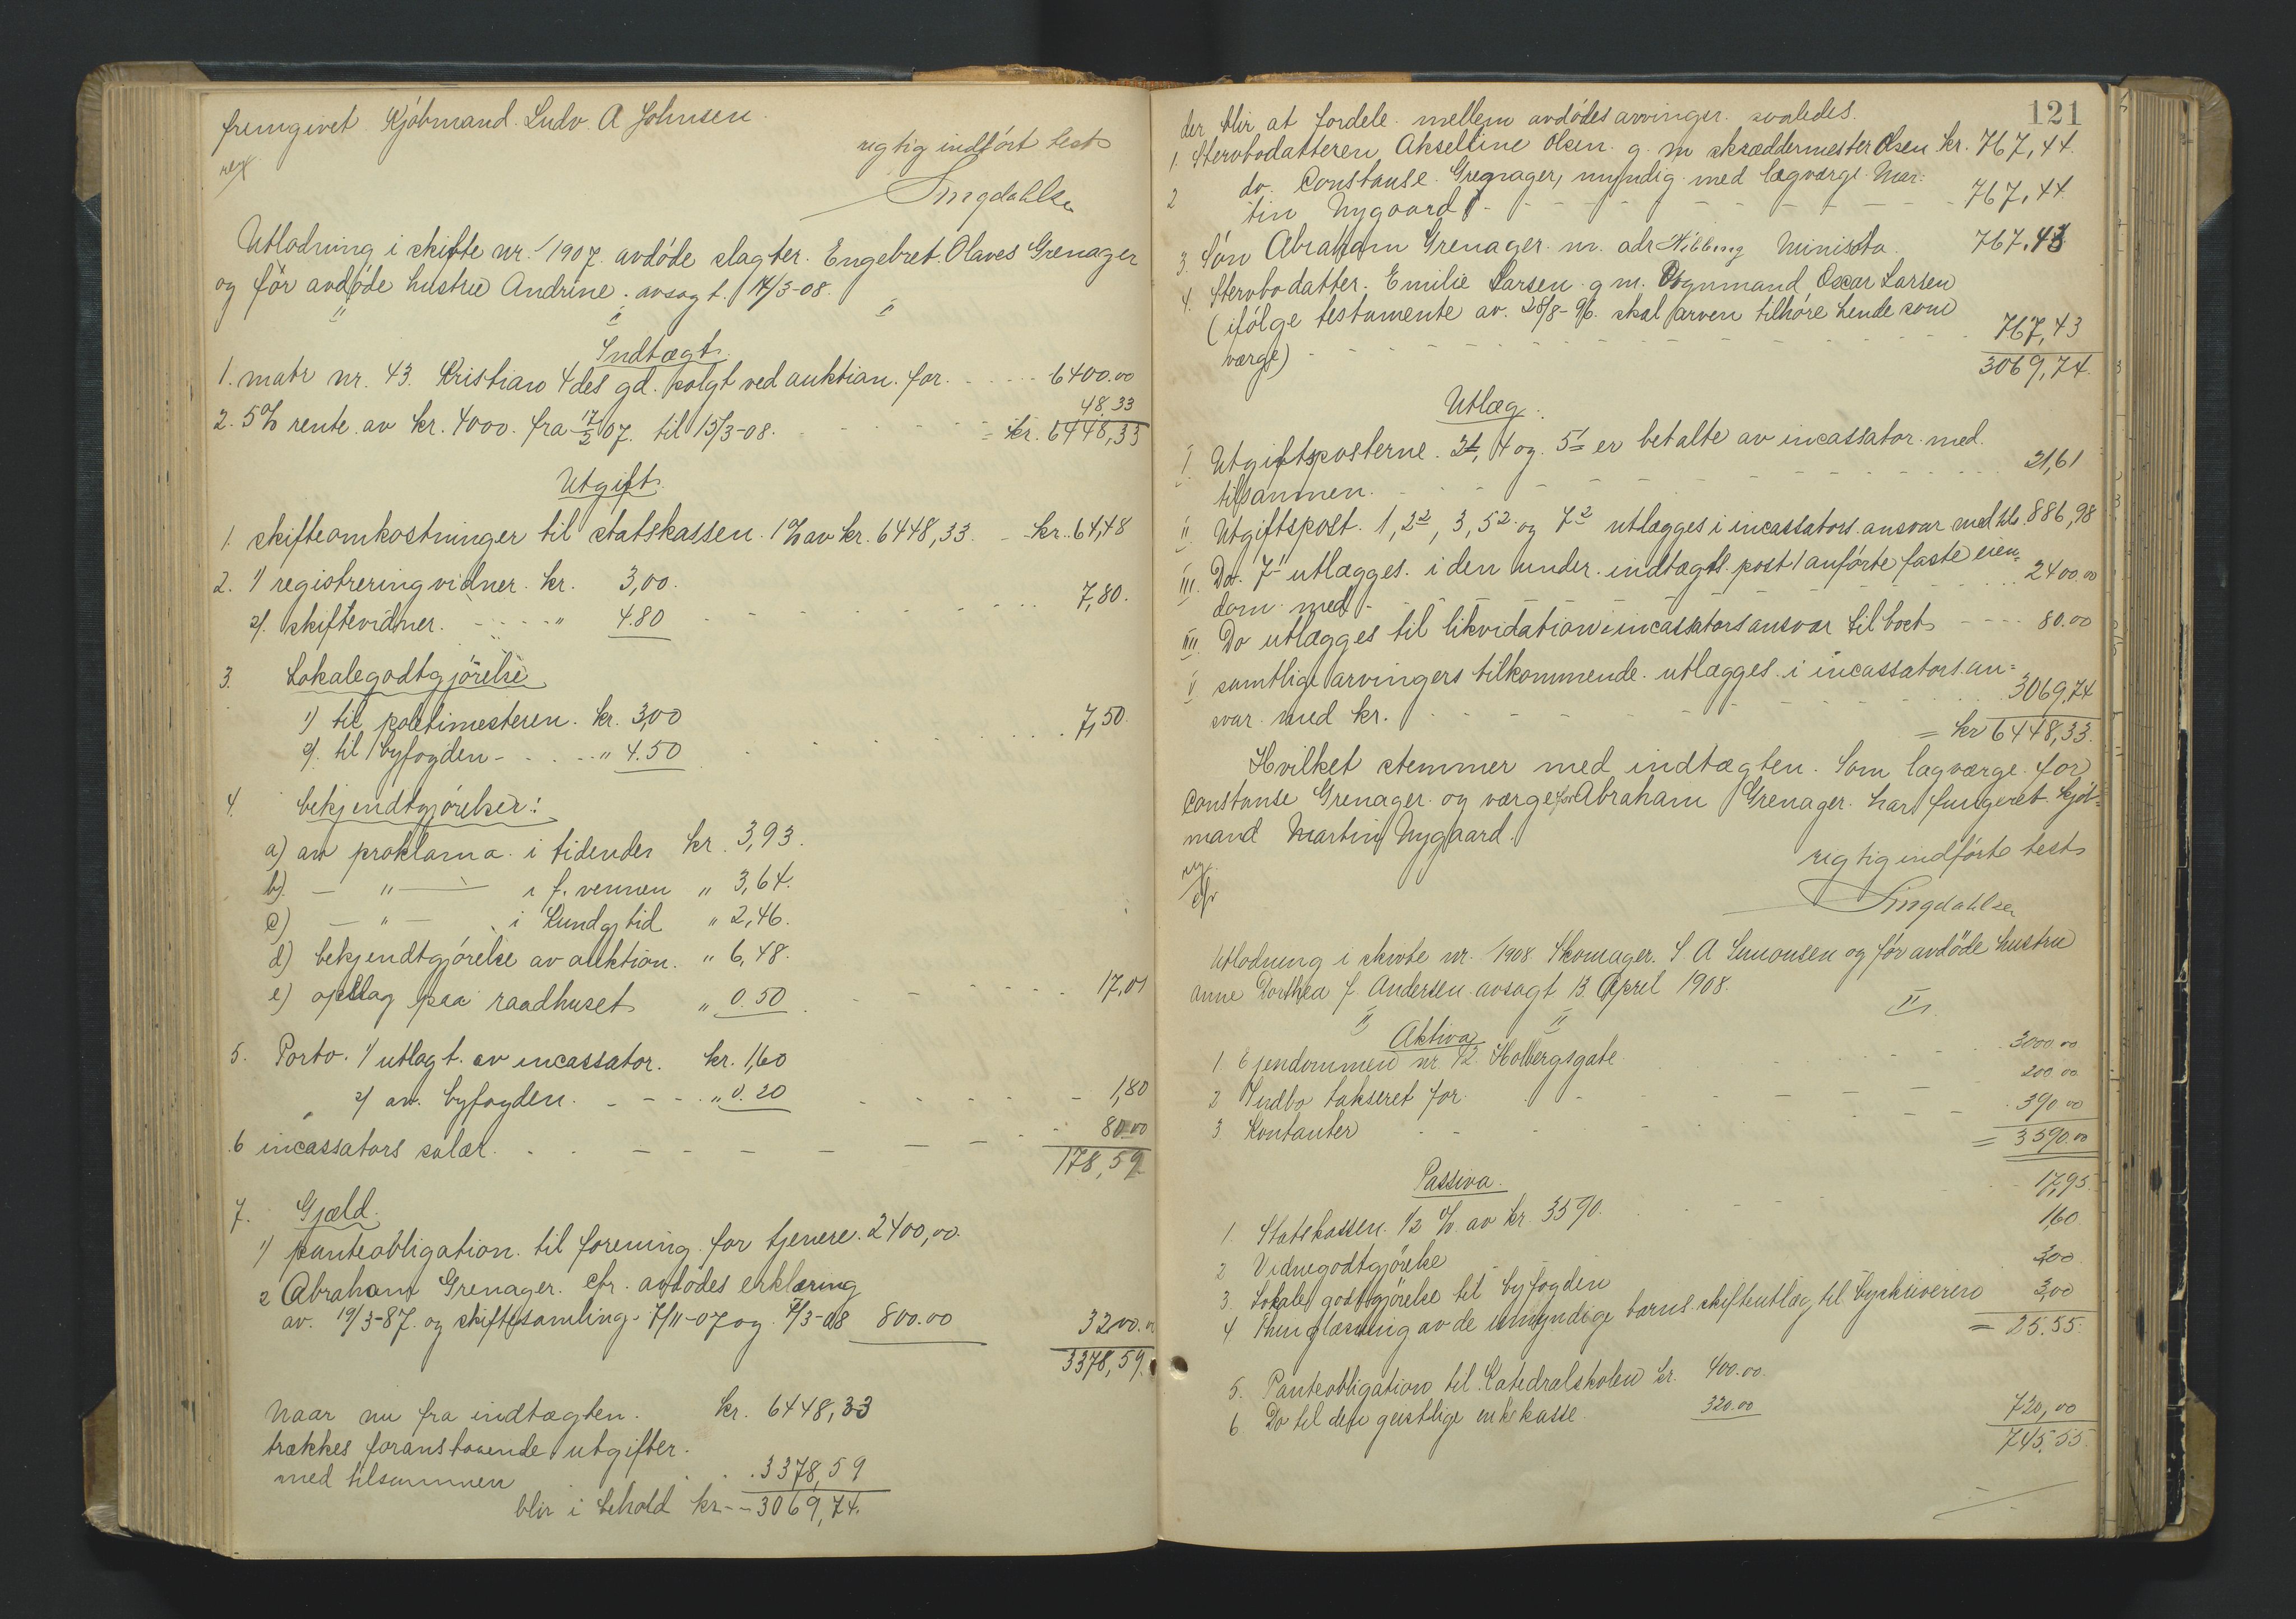 fremgivet Kjøbmand Ludv. A Johnsen.
rigtig indført test
Singdahlsen
Utlodning i skifte nr. 1/1907 avdøde slagter Engebret Olaves Grenager
og før avdøde hustru Andrine. avsagt 14/3-08.
" " "
Indtægt
1. matr nr. 43. Kristians 4des gd. solgt ved auktion for - - - - 6400.00
2. 5% rente av kr. 4000. fra 17/2 07. til 13/3-08. - - - 48.33
= kr. 6448,33
Utgift.
1. skifteomkostninger til statskassen. 1% av kr. 6448,33. - - kr. 64,48
2. 1/ registreringvidner. kr. 3,00.
2/. skiftevidner. - - - " 4.80 - - - 7,80.
3. Lokalegodtgjörelse
1) til politimesteren. kr. 3,00
2/. til byfogden - - - " 4.50 - - - 7,50.
4. bekjendtgjörelser:
a) av proklama i tidender kr. 3,93.
b) — " — i f. vennen " 3,64.
c) — " — i Kundgj tid " 2,46.
d) bekjendtgjörelse av auktion. " 6,48.
e) opslag paa raadhuset " 0.50 - - - 17,01
5. Porto. 1/ utlagt av incassator. kr. 1,60
2/ av. byfogden. - - - " 0.20 - - - 1,80
6 incassators salær. - - - 80.00
178,59
7. Gjæld.
1) panteobligation til forening for tjenere. 2400,00.
2 Abraham Grenager. cfr. avdödes erklæring
av. 19/3-87. og skiftesamling 7/11-07 og 7/3-08 800.00 3200.00
3378,59.
Naar nu fra indtægten. kr. 6448,33
trækkes foranstaaende utgifter.
med tilsammen . . 3378,59
blir i behold kr. - - 3069,74.
121
der blir at fordele mellem avdødes arvinger saaledes.
1. Stervbodatteren Akselline Olsen g. m skræddermester Olsen kr. 767,44.
2 do. Constanse Grenager, myndig med lagværge Mar-
tin Nygaard - - - 767,44.
3. Søn Abraham Grenager. m. adr Hibbing Minisota. 767,43
4. Stervbodatter. Emilie Larsen g m. Vognmand Oscar Larsen
(ifølge testamente av. 28/8-96. skal arven tilhöre hende som
værge) - - - 767,43
3069,74.
Utlæg.
I. Utgiftsposterne. 2 1, 4 og. 5 1 er betalte av incassator med
tilsammen. - - - 21,61
II. Utgiftspost. 1, 2 2, 3, 5 2 og 7 2 utlægges i incassators ansvar med kr. 886,98
III. Do. 7 1 utlægges i den under indtægts post 1 anförte faste eien=
dom med - - - 2400.00
IIII. Do utlægges til likvidation i incassators ansvar til boet - - - - 80.00
V samtlige arvingers tilkommende utlægges i incassators an=
svar med kr. - - - 3069,74
= kr 6448,33.
Hvilket stemmer med indtægten. Som lagværge for
Constanse Grenager og værge for Abraham Grenager har fungeret kjøb-
mand Martin Nygaard.
rigtig indförte test
cfr
Singdahlsen
Utlodning i skivte nr. 1908 Skomager. S. A Simonsen og før avdöde hustru
Anne Dorthea f. Andersen avsagt 13. April 1908.
" " "
Aktiva
1 Ejendommen nr. 12 Holbergsgate . . . 3000.00
2 Indbo takseret for - - - 200.00
3 Kontanter - - - 390.00
= 3590.00
Passiva.
1. Statskassen. 1/2 % av kr. 3590. - - - 17,95
2 Vidnegodtgjörelse 1,60
3. Lokale godtgjörelse til byfogden 3,00
4 Thinglæsning av de umyndige barns skifteutlæg til byskriveren 3,00
= 25.55.
5. Panteobligation til Katedralskolen kr. 400.00.
6 Do til den geistlige enkekasse. 320.00 720,00
745,55.